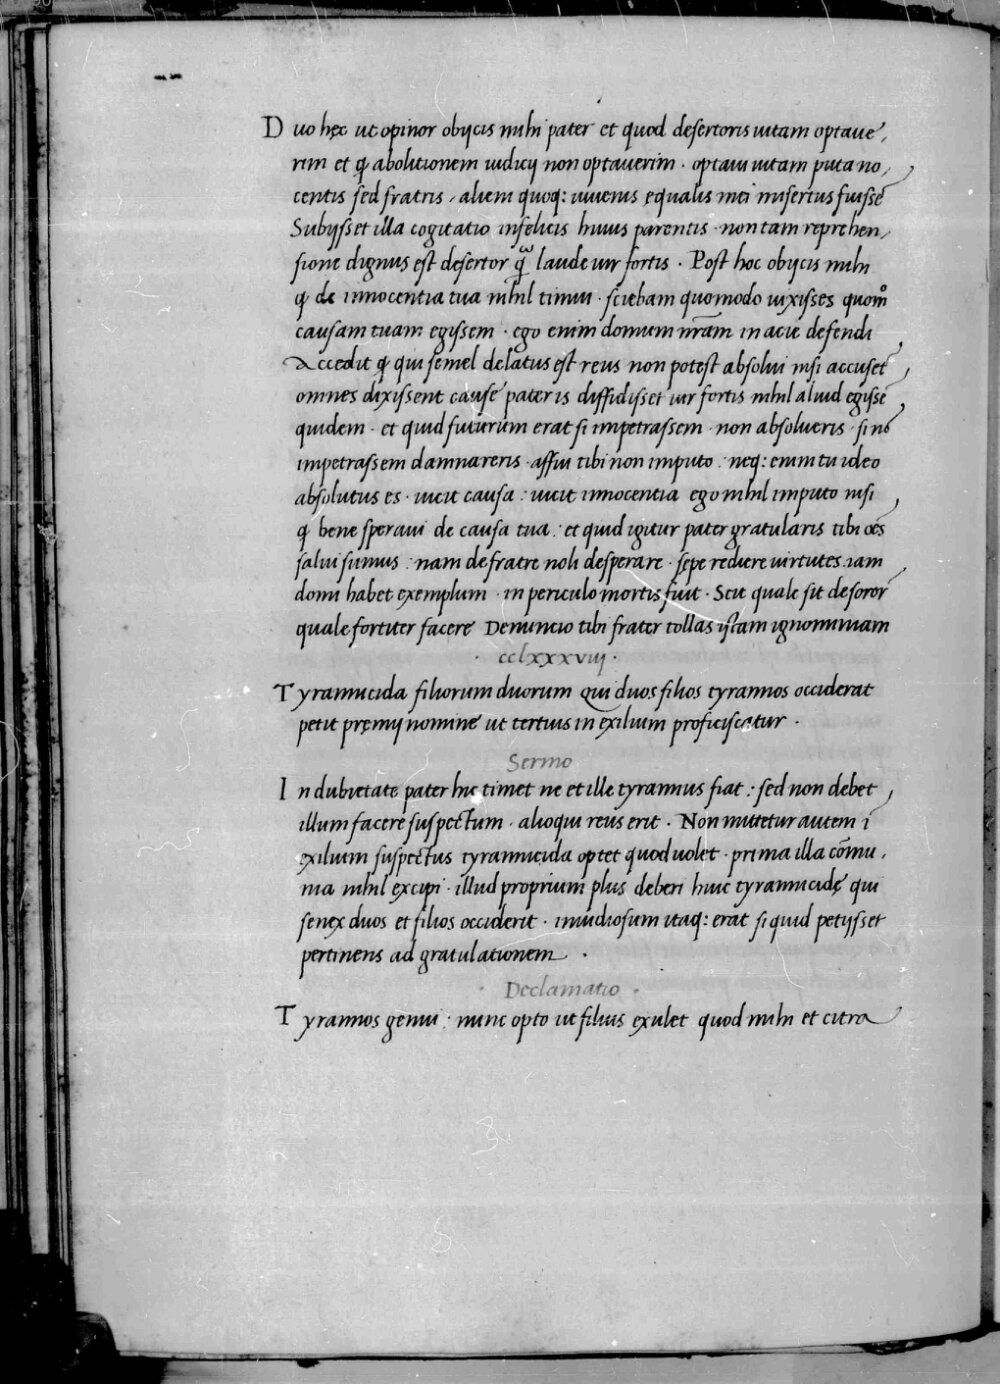 Duo hęc ut opinor obijcis mihi pater et quod desertoris uitam optaue,
rim et ꝙ abolitionem iudicij non optauerim · optaui uitam puta no,
centis sed fratris, alium quoq: iuuenis equalis mei misertus fuissẽ
Subijsset illa cogitatio infelicis huius parentis · non tam reprehen,
sione dignus est desertor ꝙ̃ laude uir fortis · Post hoc obijcis mihi
ꝙ de innocentia tua nihil timui · sciebam quomodo uixisses quom̊
causam tuam egissem · ego enim domum nr̃am in acie defendi
Accedit ꝙ qui semel delatus est reus non potest absolui nisi accuset̃
omnes dixissent causẽ pater is diffidisset uir fortis nihil aliud egissẽ
quidem · et quid futurum erat si impetrassem · non absolueris · si nõ
impetrassem damnareris · affui tibi non imputo : neq: enim tu ideo
absolutus es · uicit causa : uicit innocentia ego nihil imputo nisi
ꝙ bene speraui de causa tua : et quid igitur pater gratularis tibi oẽs
salui sumus : nam de fratre noli desperare · sępe rediere uirtutes · iam
domi habet exemplum · in periculo mortis fuit · Scit quale sit desoror̃
quale fortiter facere Denuncio tibi frater tollas istam ignominiam
· cclxxxviij ·
Tyrannicida filiorum duorum Qui duos filios tyrannos occiderat
petit pręmij nomine ut tertius in exilium proficiscatur ·
Sermo
In dubietate pater hic timet ne et ille tyrannus fiat : sed non debet
illum facere suspectum · alioqui reus erit · Non mittetur autem ĩ
exilium suspectus tyrannicida optet quod uolet · prima illa cõmu,
nia nihil excipi · illud proprium plus deberi huic tyrannicidę qui
senex duos et filios occiderit · inuidiosum itaq: erat si quid petijsset
pertinens ad gratulationem ·
· Declamatio ·
Tyrannos genui : nunc opto ut filius exulet quod mihi et citra